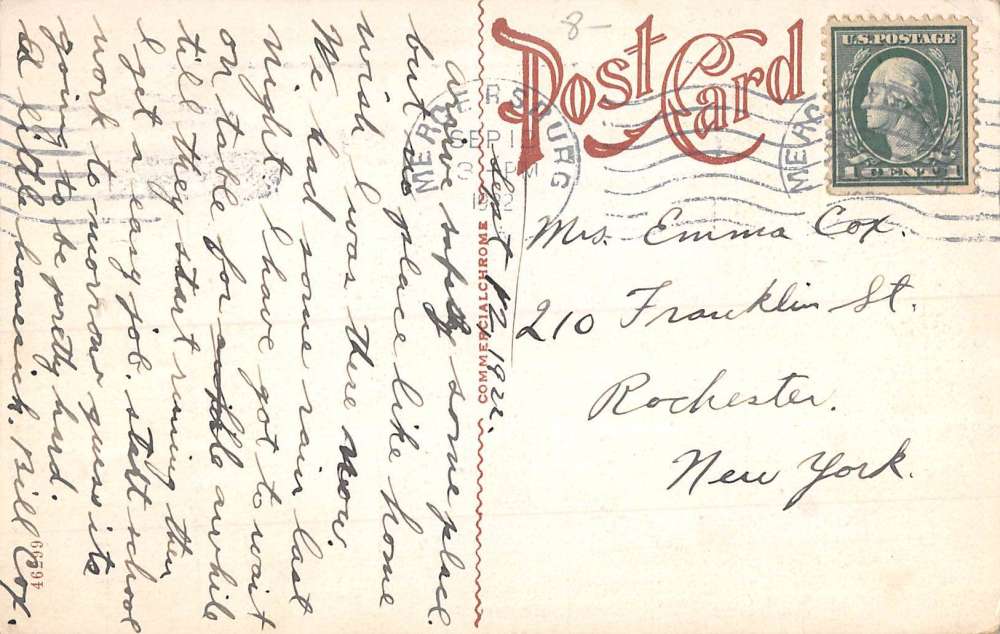 8-
Post Card
U.S. POSTAGE
1 CENT 1
MERCERSBURG
SEP 12
PM
MERC
Sept 12 1922.
arrive safely some place
but no place like home
wish I was there now.
We had some rain last
night. I have got to wait
on table for awhile
till they start running then
I get a easy job. start school
work to-morrow guess its
going to be pretty hard.
A little homesick. Bill Cox.
Mrs. Emma Cox.
210 Franklin St.
Rochester.
New York.
COMMERCIALCHROME
46299